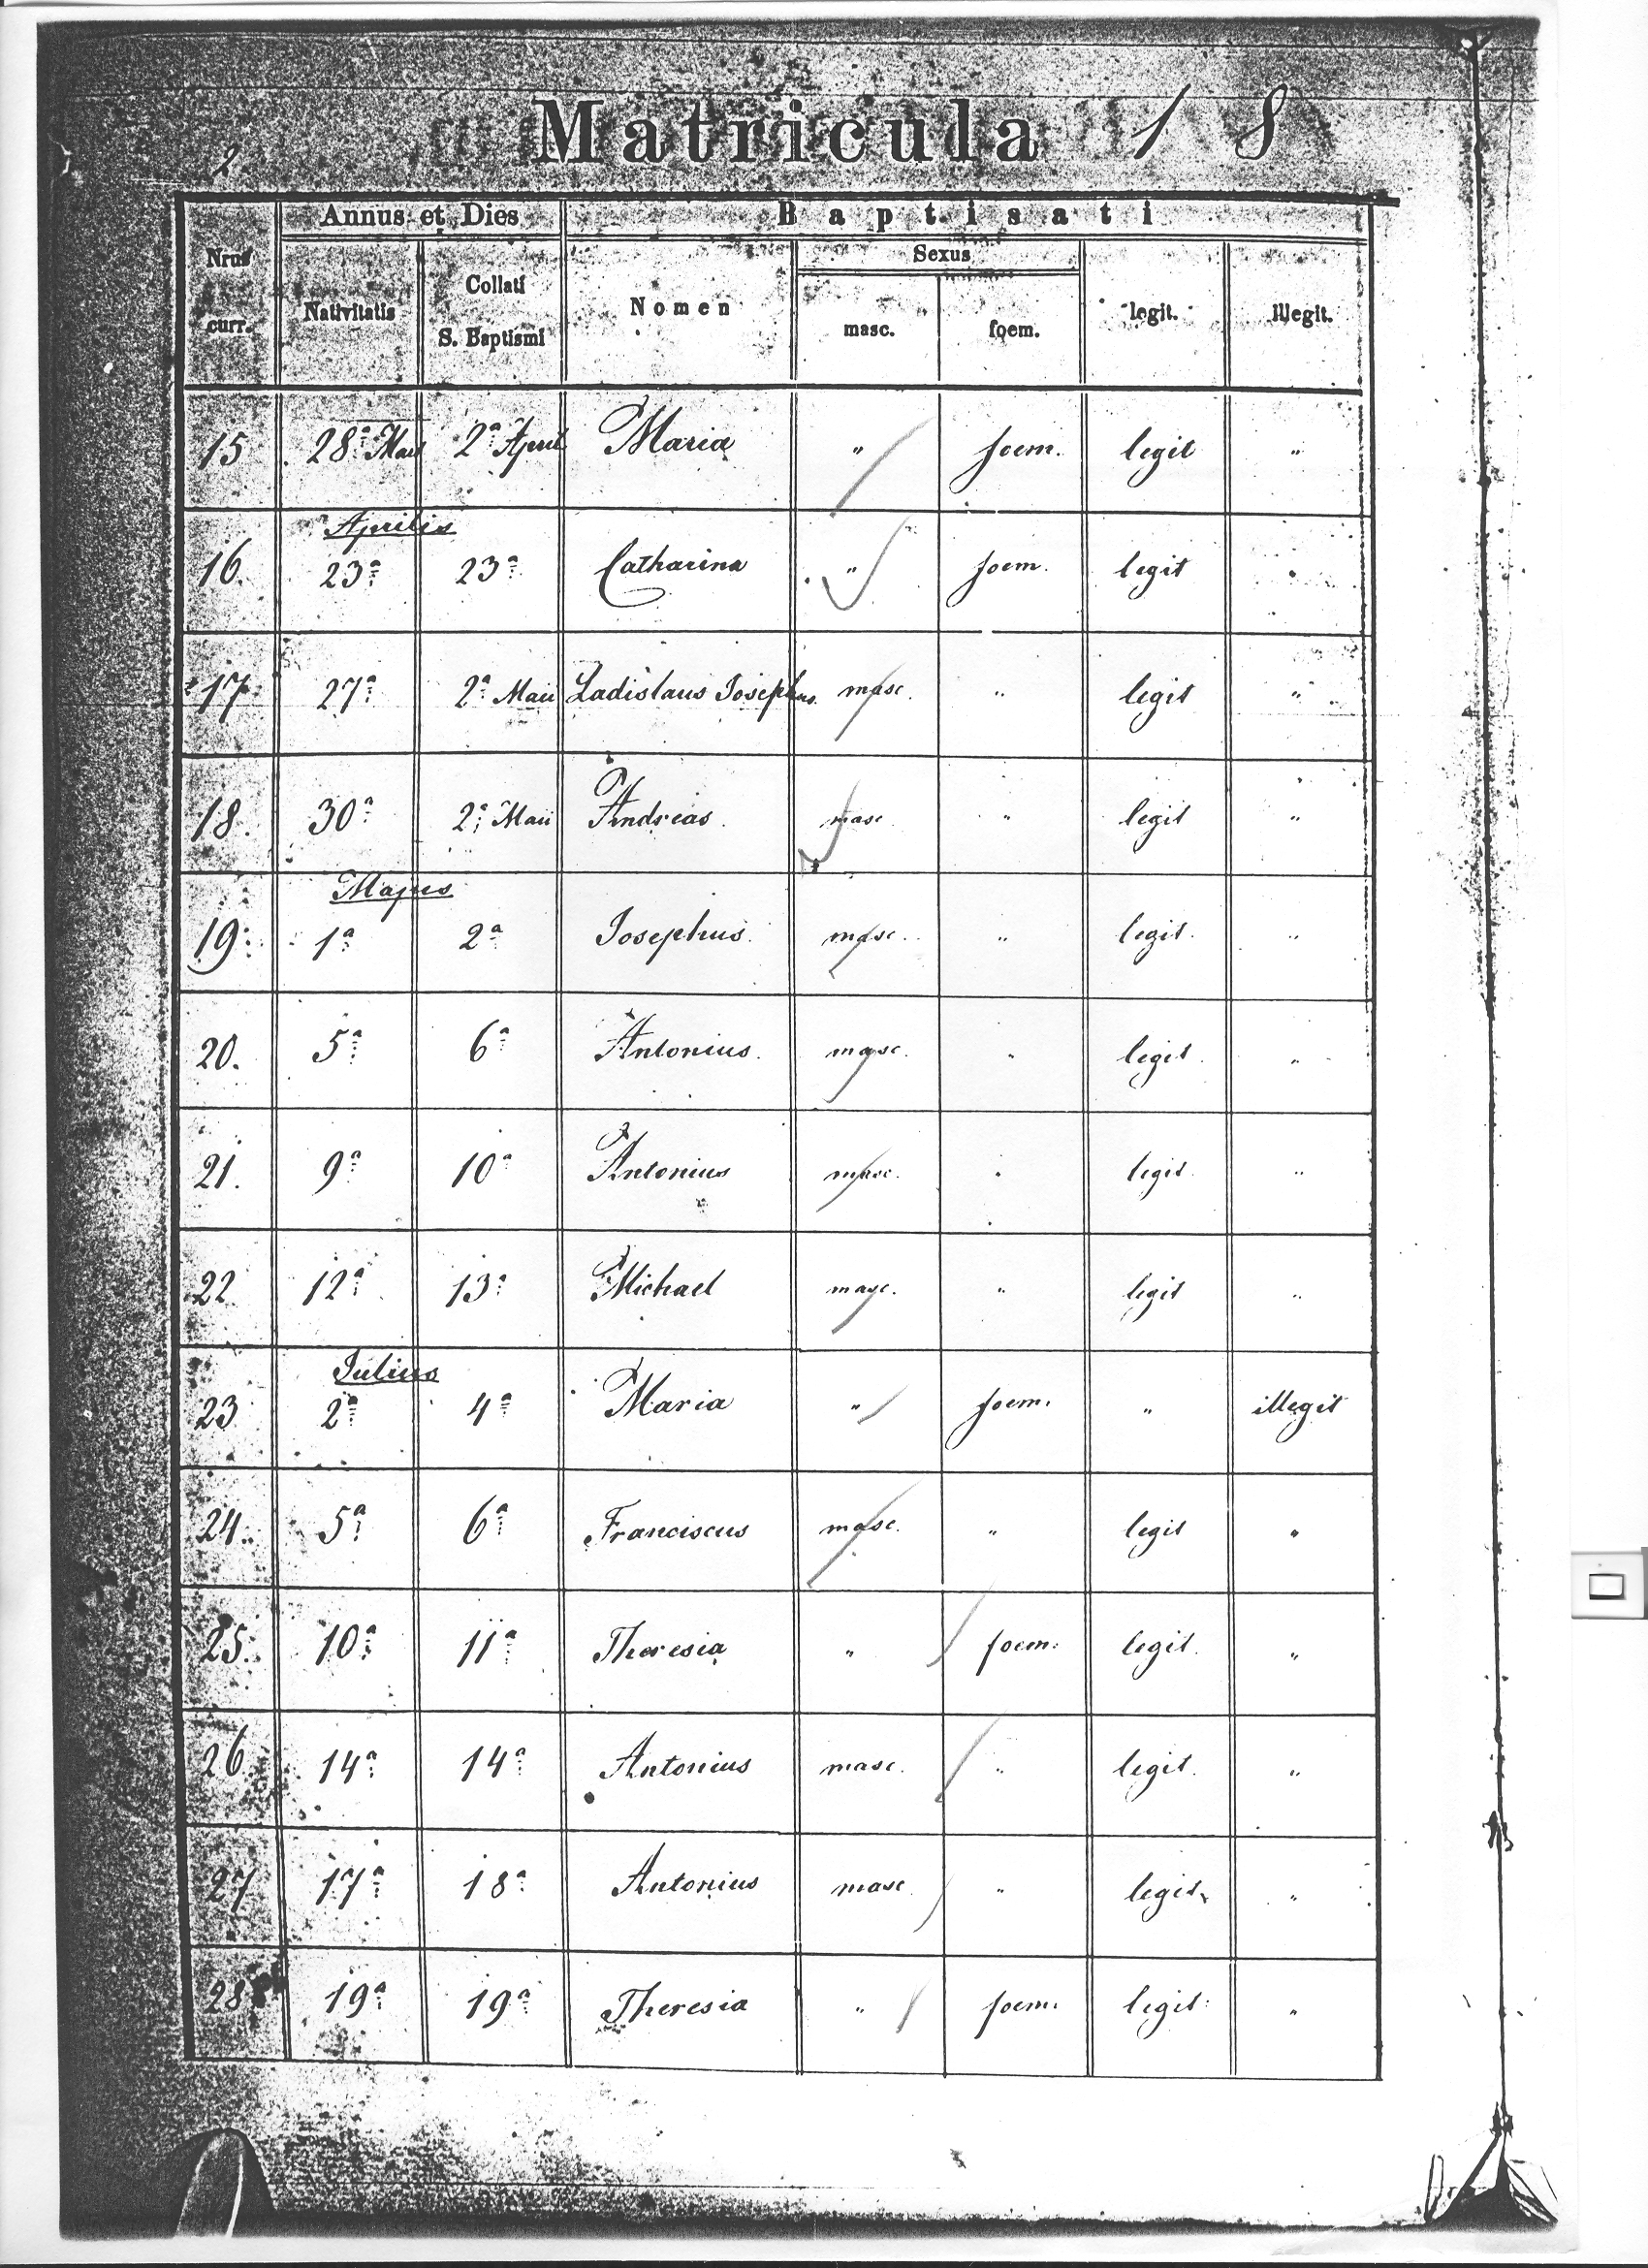 2 Matricula 1 8
Annus et Dies Baptisati
Nrus curr. Nativitatis Collati S. Baptismi Nomen Sexus masc. foem. legit. illegit.
15 28a 2a April Maria " foem. legit "
Aprilis
16. 23a 23a Catharina " foem. legit "
17 27a 2a Maii Ladislaus Josephus masc. " legit "
18. 30a 2a Maii Andreas. masc " legit "
Majus
19. 1a 2a Josephus. masc. " legit. "
20. 5a 6a Antonius. masc. " legit. "
21. 9a 10a Antonius masc. " legit. "
22 12a 13a Michael masc. " legit "
Julius
23 2a 4a Maria " foem. " illegit
24. 5a 6a Franciscus masc. " legit "
25. 10a 11a Theresia " foem. legit. "
26 14a 14a Antonius masc. " legit. "
27 17a 18a Antonius masc " legit. "
28 19a 19a Theresia " foem. legit. "